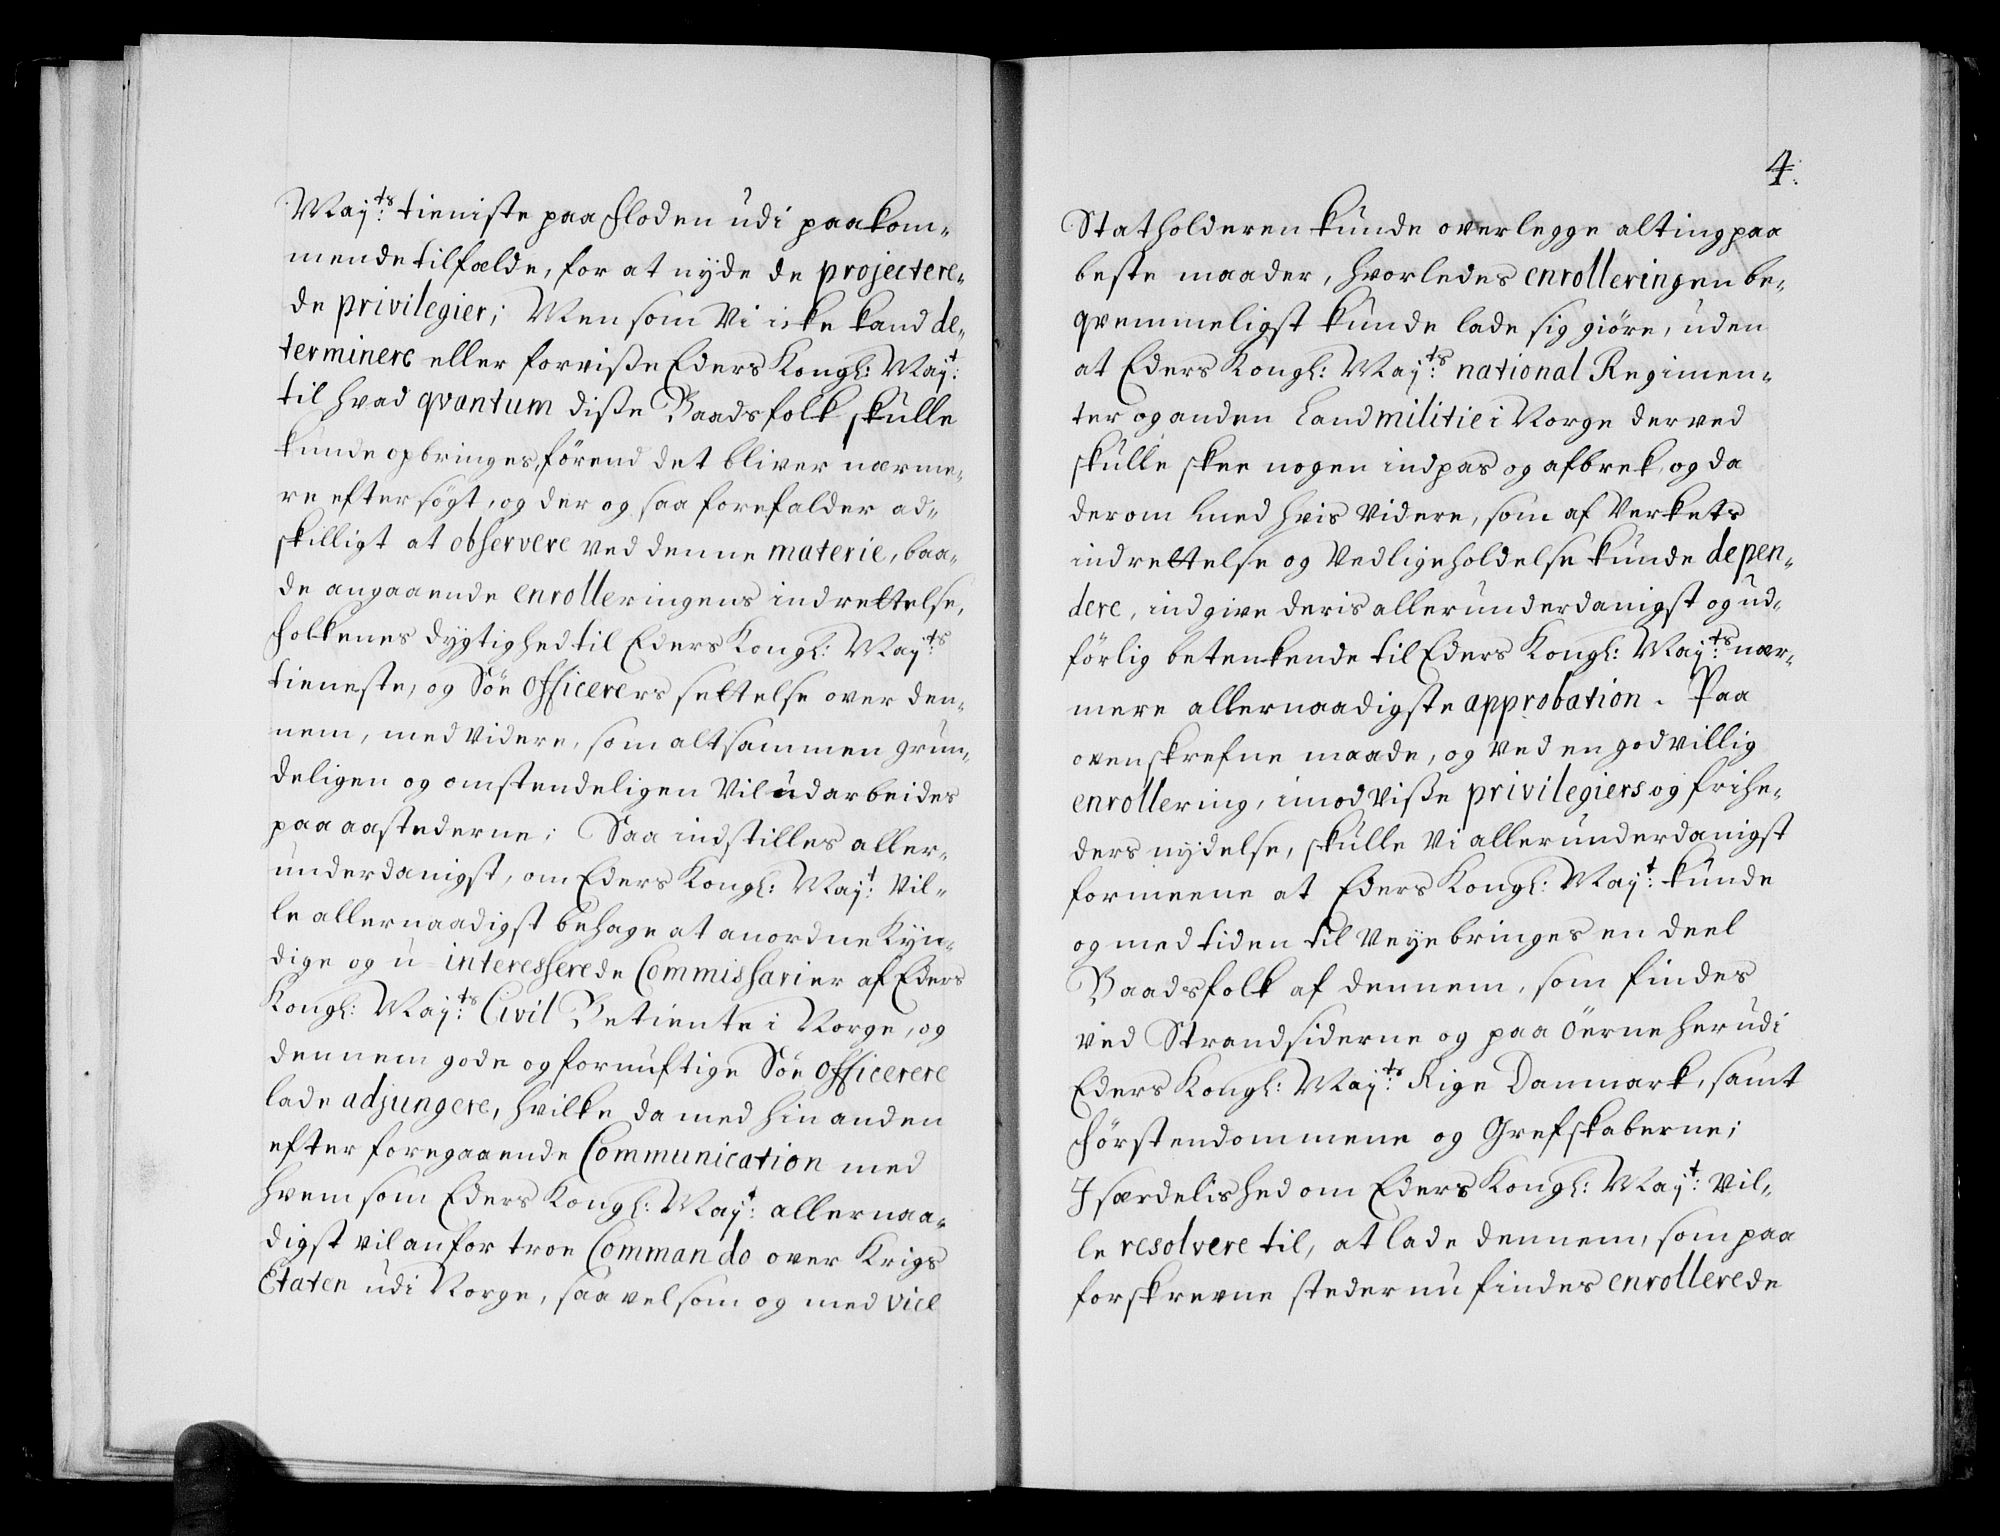 Maÿ:ts tieniste paa floden udi paakom-
mende tilfælde, for at nyde de projectere-
de privilegier; Men som Vi icke kand de-
terminere eller forvisse Eders Kongl: Maÿ:t
til hvad qvantum disse Baadsfolk skulle
kunde opbringes, förend det bliver nærme-
re eftersögt, og der og saa forefalder ad-
skilligt at observere ved denne materie, baa-
de angaaende enrolleringens indrettelse,
folkenes dygtighed til Eders Kongl: Maÿ:ts
tieneste, og Söe Officerers settelse over den-
nem, med videre, som altsammen grun-
deligen og omstendeligen Vil udarbeides
paa aastederne; Saa indstilles aller-
underdanigst, om Eders Kongl: Maÿ:t Vil-
le allernaadigst behage at anordne Kyn-
dige og u-interesserede Commissarier af Eders
Kongl: Maÿ:ts Civil Betiente i Norge, og
dennem gode og fornuftige Söe Officerere
lade adjungere, hvilke da med hinanden
efter foregaaende Communication med
hvem som Eders Kongl: Maÿ:t allernaa-
digst vil anfortroe Commando over Krigs
Etaten udi Norge, saavelsom og med Vice
4.
Statholderen kunde overlegge alting paa
beste maader, hvorledes enrolleringen be-
qvemmeligst kunde lade sig giöre, uden
at Eders Kongl: Maÿ:ts national Regimen-
ter og anden Landmilitie i Norge derved
skulle skee nogen indpas og afbrek, og da
derom med hvis videre, som af Verkets
indrettelse og Vedligeholdelse kunde depen-
dere, indgive deris allerunderdanigst og ud-
förlig betenkende til Eders Kongl: Maÿ:ts nær-
mere allernaadigste approbation. Paa
ovenskrefne maade, og ved en godvillig
enrollering, imod visse privilegiers og frihe-
ders nydelse, skulle Vi allerunderdanigst
formeene at Eders Kongl: Maÿ:t kunde
og med tiden til Veye bringes en deel
Baadsfolk af dennem, som findes
ved Strandsiderne og paa Öerne her udi
Eders Kongl: Maÿ:ts Rige Danmark, samt
Förstendommene og Grefskaberne;
I særdelished om Eders Kongl: Maÿ:t Vil-
le resolvere til, at lade dennem, som paa
forskrevne steder nu findes enrollerede